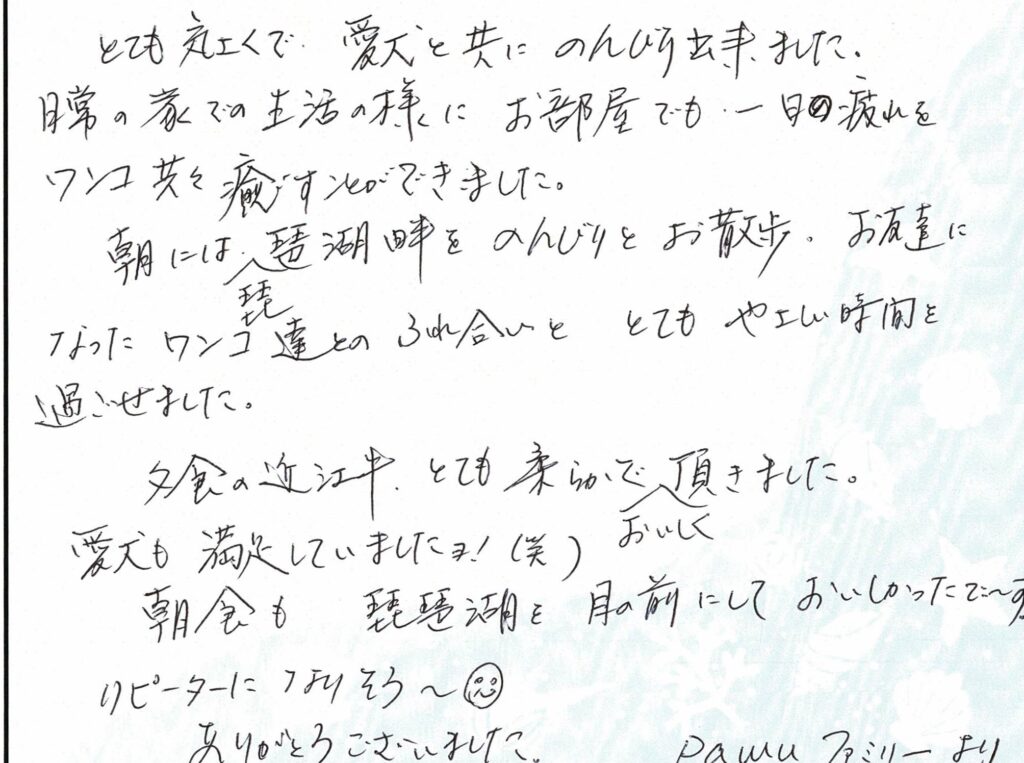 とても広くて、愛犬と共に のんびり出来ました。
日常の家での生活の様に お部屋でも、一日の疲れを
ワンコ共々癒すことができました。
朝には、琵琶湖畔を のんびりと お散歩。お友達に
なった ワンコ達との ふれ合いと とても やさしい時間を
過ごせました。
夕食の近江牛、とても 柔らかで おいしく 頂きました。
愛犬も 満足していましたヨ!(笑)
朝食も 琵琶湖を 目の前にして おいしかったで〜す
リピーターに なりそう〜
ありがとうございました。
Pawuファミリーより